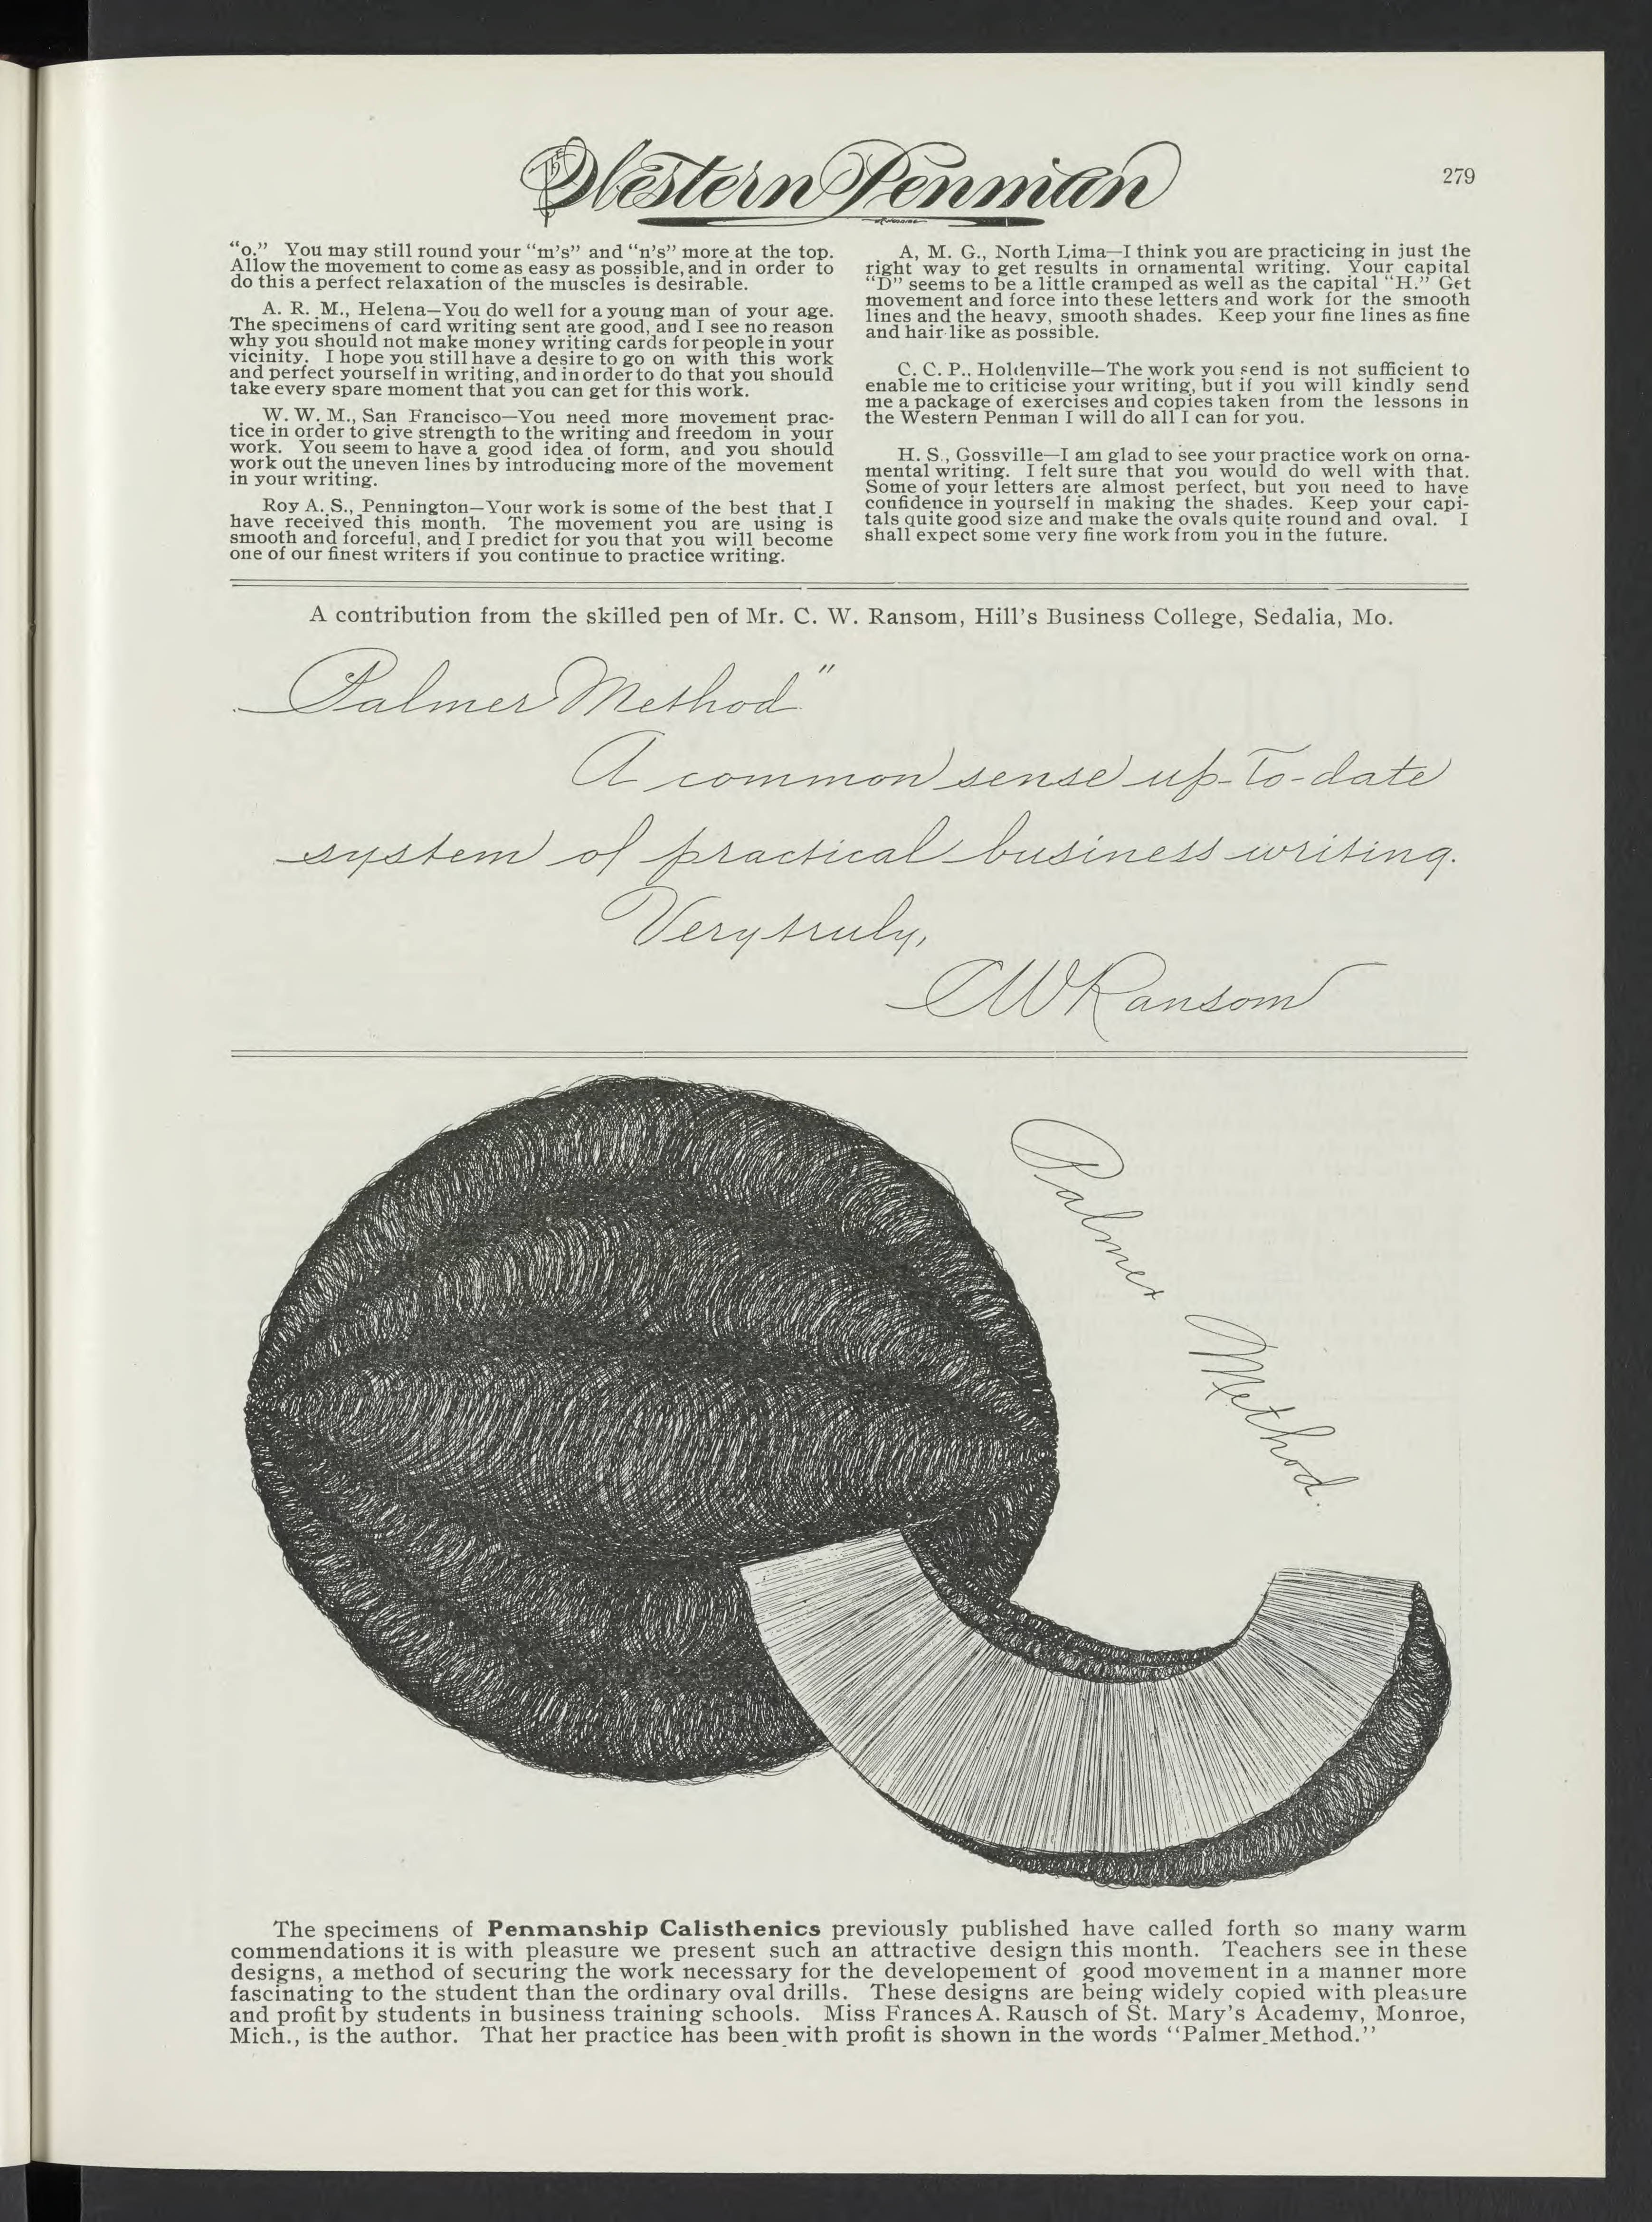 The Western Penman
279
“o.” You may still round your “m’s” and “n’s” more at the top.
Allow the movement to come as easy as possible, and in order to
do this a perfect relaxation of the muscles is desirable.
A. R. M., Helena—You do well for a young man of your age.
The specimens of card writing sent are good, and I see no reason
why you should not make money writing cards for people in your
vicinity. I hope you still have a desire to go on with this work
and perfect yourself in writing, and in order to do that you should
take every spare moment that you can get for this work.
W. W. M., San Francisco—You need more movement prac-
tice in order to give strength to the writing and freedom in your
work. You seem to have a good idea of form, and you should
work out the uneven lines by introducing more of the movement
in your writing.
Roy A. S., Pennington—Your work is some of the best that I
have received this month. The movement you are using is
smooth and forceful, and I predict for you that you will become
one of our finest writers if you continue to practice writing.
A, M. G., North Lima—I think you are practicing in just the
right way to get results in ornamental writing. Your capital
“D” seems to be a little cramped as well as the capital “H.” Get
movement and force into these letters and work for the smooth
lines and the heavy, smooth shades. Keep your fine lines as fine
and hair-like as possible.
C. C. P., Holdenville—The work you send is not sufficient to
enable me to criticise your writing, but if you will kindly send
me a package of exercises and copies taken from the lessons in
the Western Penman I will do all I can for you.
H. S., Gossville—I am glad to see your practice work on orna-
mental writing. I felt sure that you would do well with that.
Some of your letters are almost perfect, but you need to have
confidence in yourself in making the shades. Keep your capi-
tals quite good size and make the ovals quite round and oval. I
shall expect some very fine work from you in the future.
A contribution from the skilled pen of Mr. C. W. Ransom, Hill’s Business College, Sedalia, Mo.
"Palmer Method"
A common sense up-to-date
system of practical business writing.
Very truly,
C W Ransom
Palmer Method.
The specimens of Penmanship Calisthenics previously published have called forth so many warm
commendations it is with pleasure we present such an attractive design this month. Teachers see in these
designs, a method of securing the work necessary for the developement of good movement in a manner more
fascinating to the student than the ordinary oval drills. These designs are being widely copied with pleasure
and profit by students in business training schools. Miss Frances A. Rausch of St. Mary’s Academy, Monroe,
Mich., is the author. That her practice has been with profit is shown in the words “Palmer Method.”